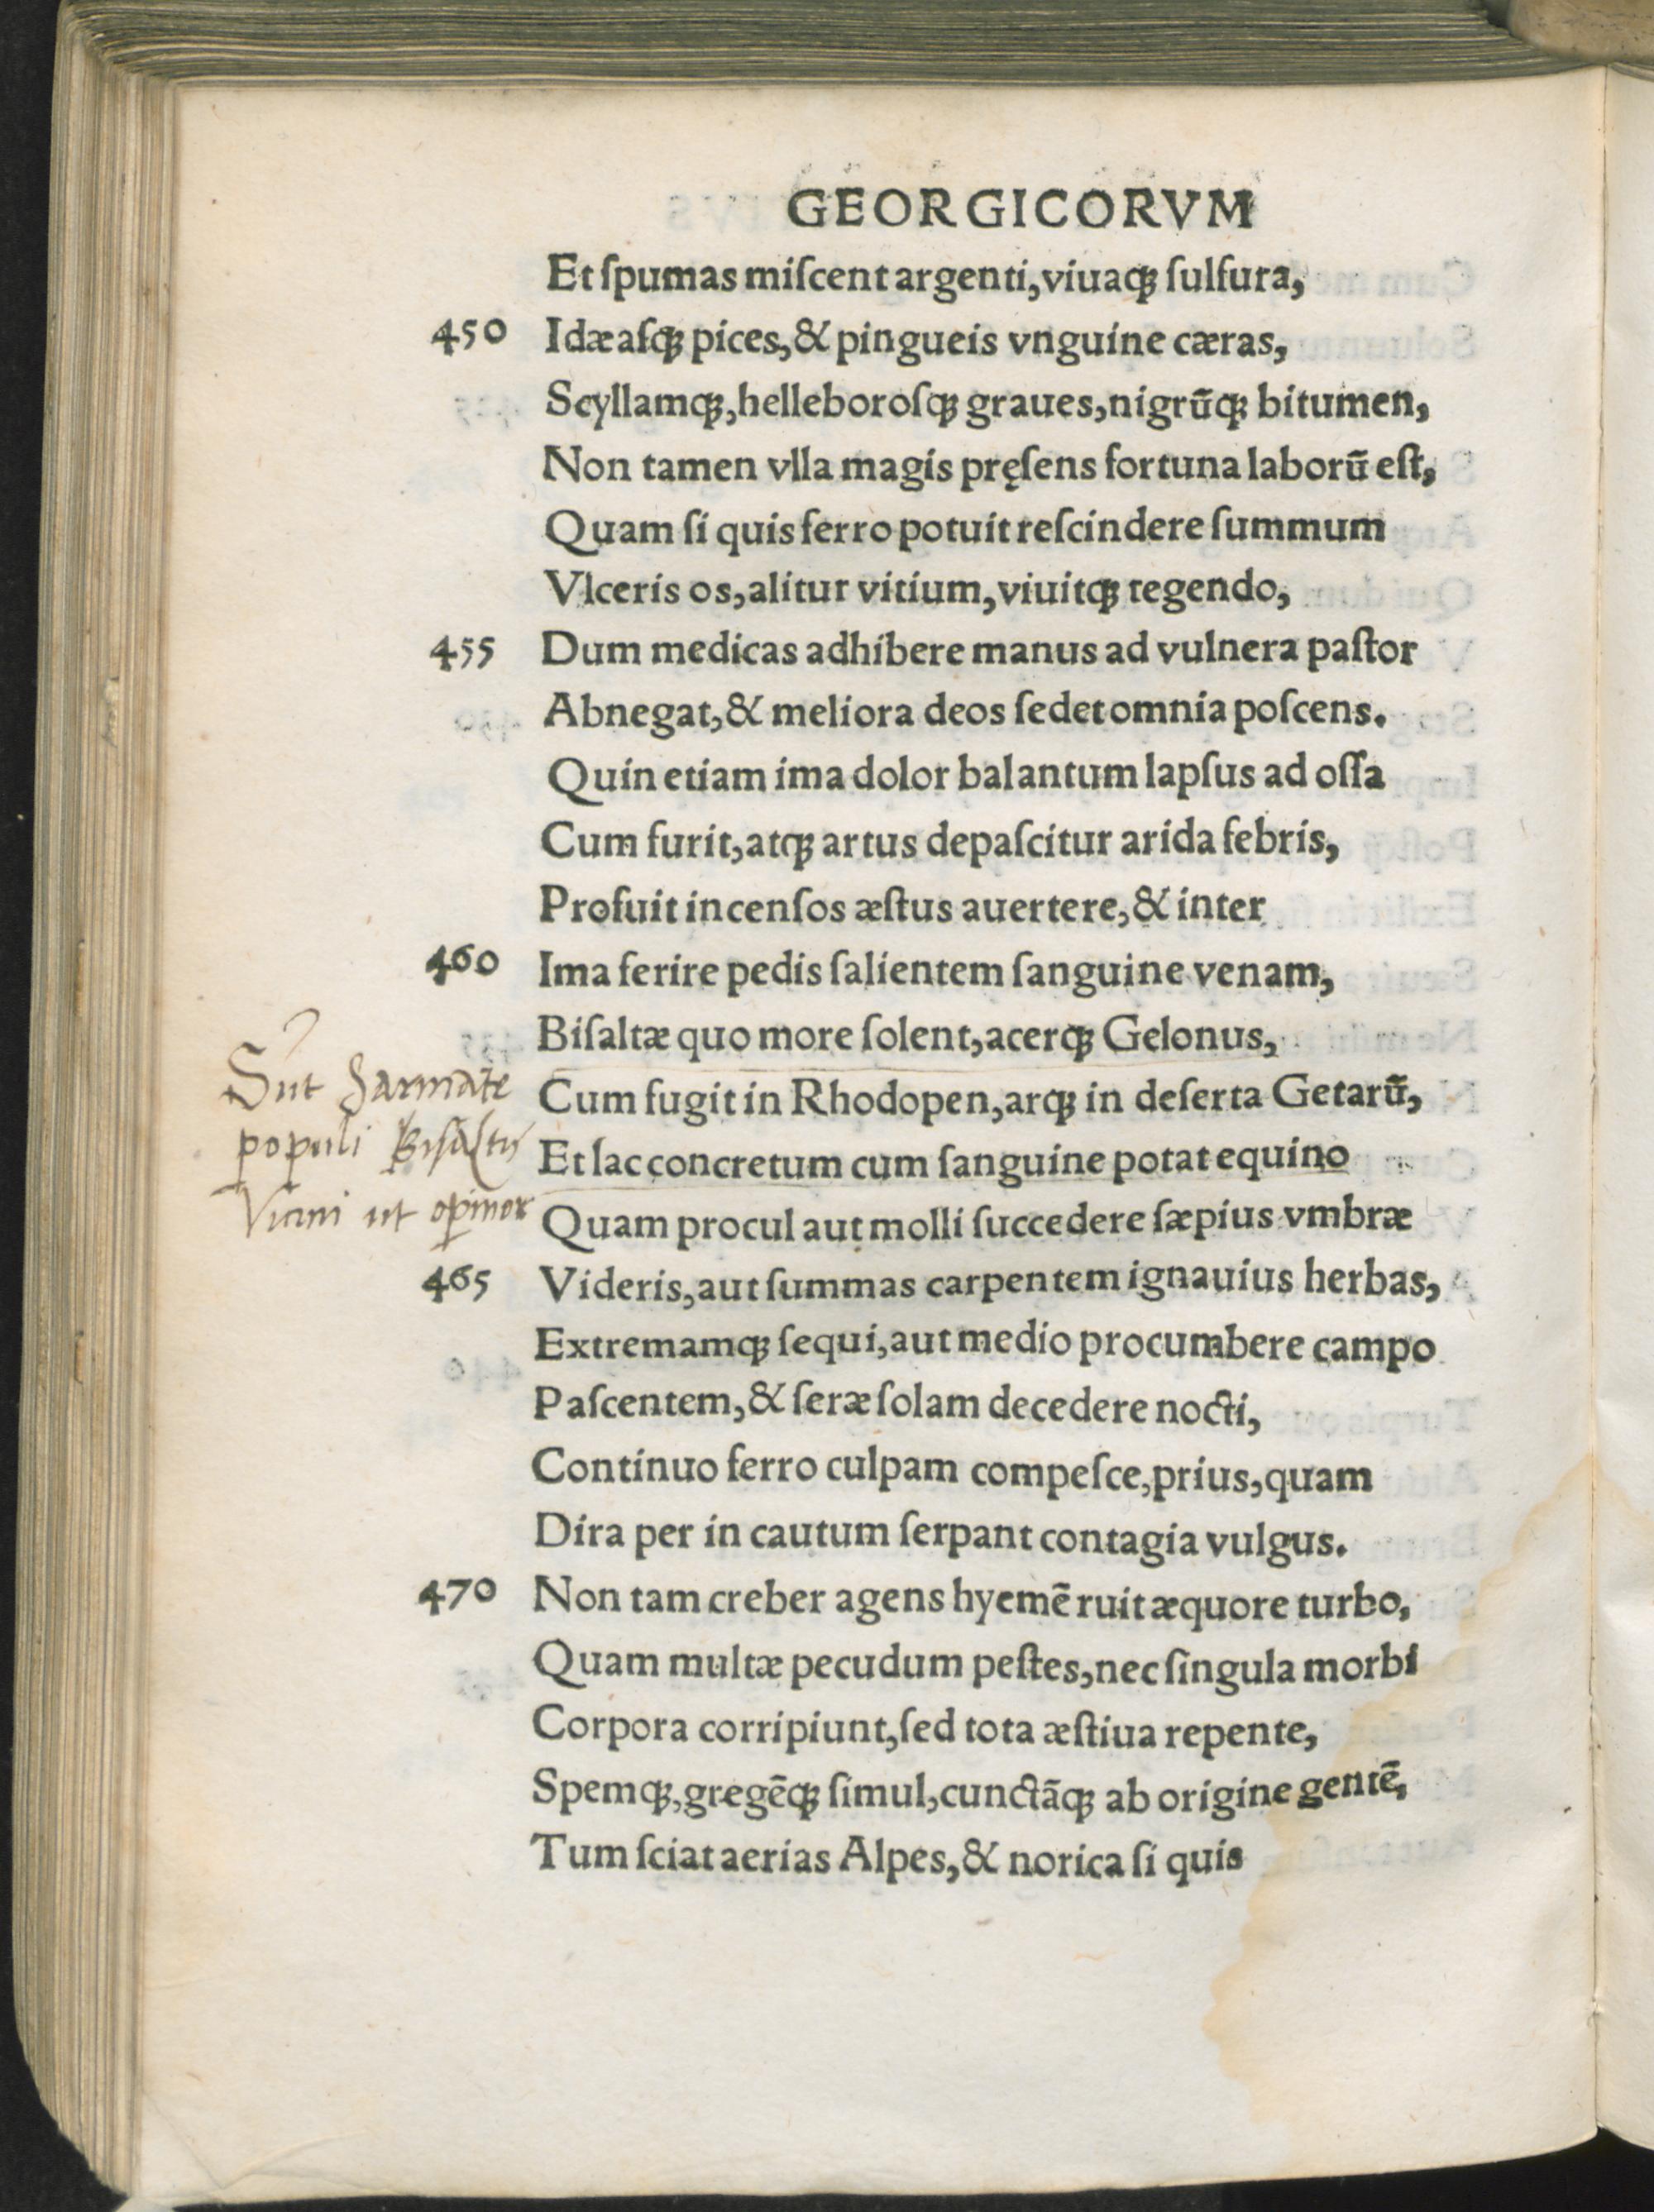 GEORGICORVM
Et ſpumas miſcent argenti, viuaqꝫ ſulfura,
450 Idæaſqꝫ pices, & pingueis vnguine cæras,
Scyllamqꝫ, helleboroſqꝫ graues, nigrūqꝫ bitumen,
Non tamen vlla magis pręſens fortuna laborū eſt,
Quam ſi quis ferro potuit reſcindere ſummum
Vlceris os, alitur vitium, viuitqꝫ tegendo,
455 Dum medicas adhibere manus ad vulnera paſtor
Abnegat, & meliora deos ſedet omnia poſcens.
Quin etiam ima dolor balantum lapſus ad oſſa
Cum furit, atqꝫ artus depaſcitur arida febris,
Profuit incenſos æſtus auertere, & inter
460 Ima ferire pedis ſalientem ſanguine venam,
Biſaltæ quo more ſolent, acerqꝫ Gelonus,
Cum fugit in Rhodopen, atqꝫ in deſerta Getarū,
Et lac concretum cum ſanguine potat equino
Sūt Sarmate
populi Bisaltis
Vicini ut opinor
Quam procul aut molli ſuccedere ſæpius vmbræ
465 Videris, aut ſummas carpentem ignauius herbas,
Extremamqꝫ ſequi, aut medio procumbere campo
Paſcentem, & ſeræ ſolam decedere nocti,
Continuo ferro culpam compeſce, prius, quam
Dira per in cautum ſerpant contagia vulgus.
470 Non tam creber agens hyemē ruit æquore turbo,
Quam multæ pecudum peſtes, nec ſingula morbi
Corpora corripiunt, ſed tota æſtiua repente,
Spemqꝫ, gregēqꝫ ſimul, cunctāqꝫ ab origine gentē,
Tum ſciat aerias Alpes, & norica ſi quis